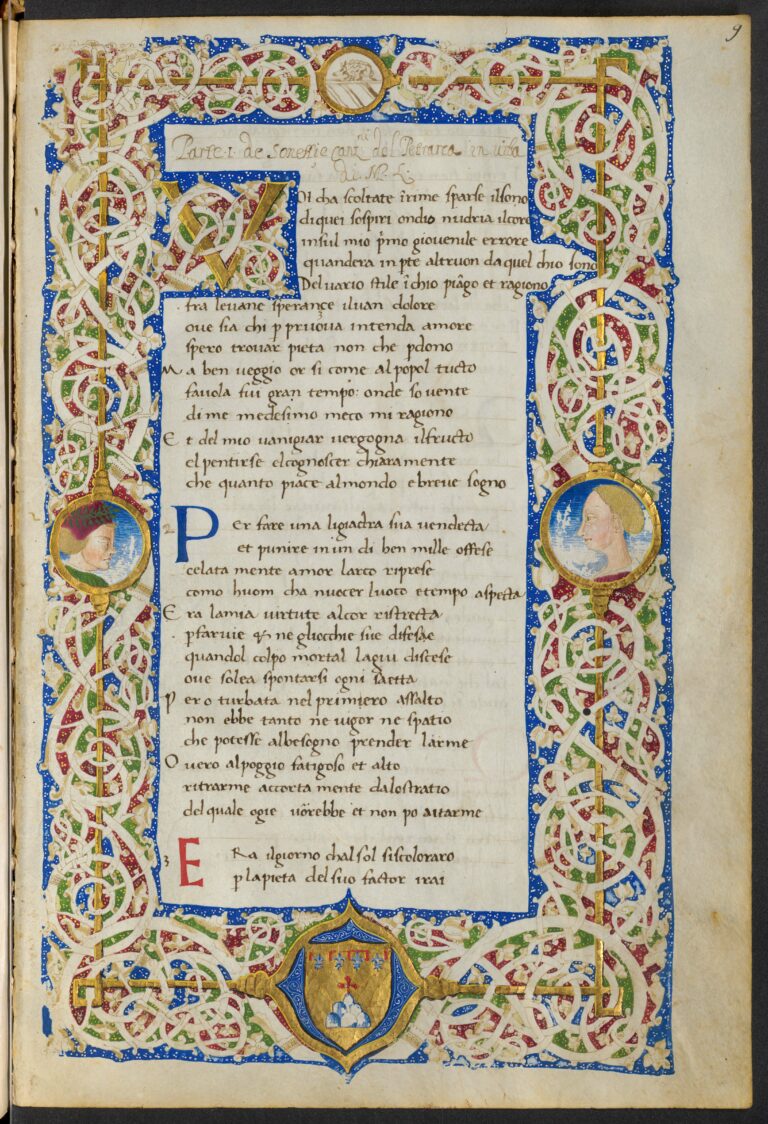 9
Parte 1. de Sonetti e Canzni del Petrarca in vita
di M. L.
VOI cha scoltate ĩ rime sparse ilsono
di quei sospiri ondio nudria ilcore
insul mio pͥmo giovenile errore
quandera in pte altruon da quel chio sono
Del vario stile ĩ chio piãgo et ragiono
fra levane sperançe ilvan dolore
ove sia chi p pruova intenda amore
spero trovar pieta non che pdono
Ma ben veggio or si come al popol tucto
favola fui gran tempo: onde sovente
di me medesimo meco mi ragiono
Et del mio vanigiar vergogna ilfructo
el pentirse elcognoscer chiaramente
che quanto piace almondo e breve sogno
2 Per fare una ligiadra sua vendecta
et punire in un di ben mille offese
celata mente amor larco riprese
como huom cha nuocer luoco e tempo aspecta
Era lamia virtute alcor ristrecta
pfarvie & ne gliocchie sue difese
quandol colpo mortal lagui discese
ove solea spontarsi ogni saetta
Pero turbata nel primiero assalto
non ebbe tanto ne vigor ne spatio
che potesse albesogno prender larme
Overo alpoggio fatigoso et alto
ritrarme accorta mente dalostratio
del quale ogie vorebbe et non po aitarme
3 ERa ilgiorno chal sol siscoloraro
p lapieta del suo factor irai